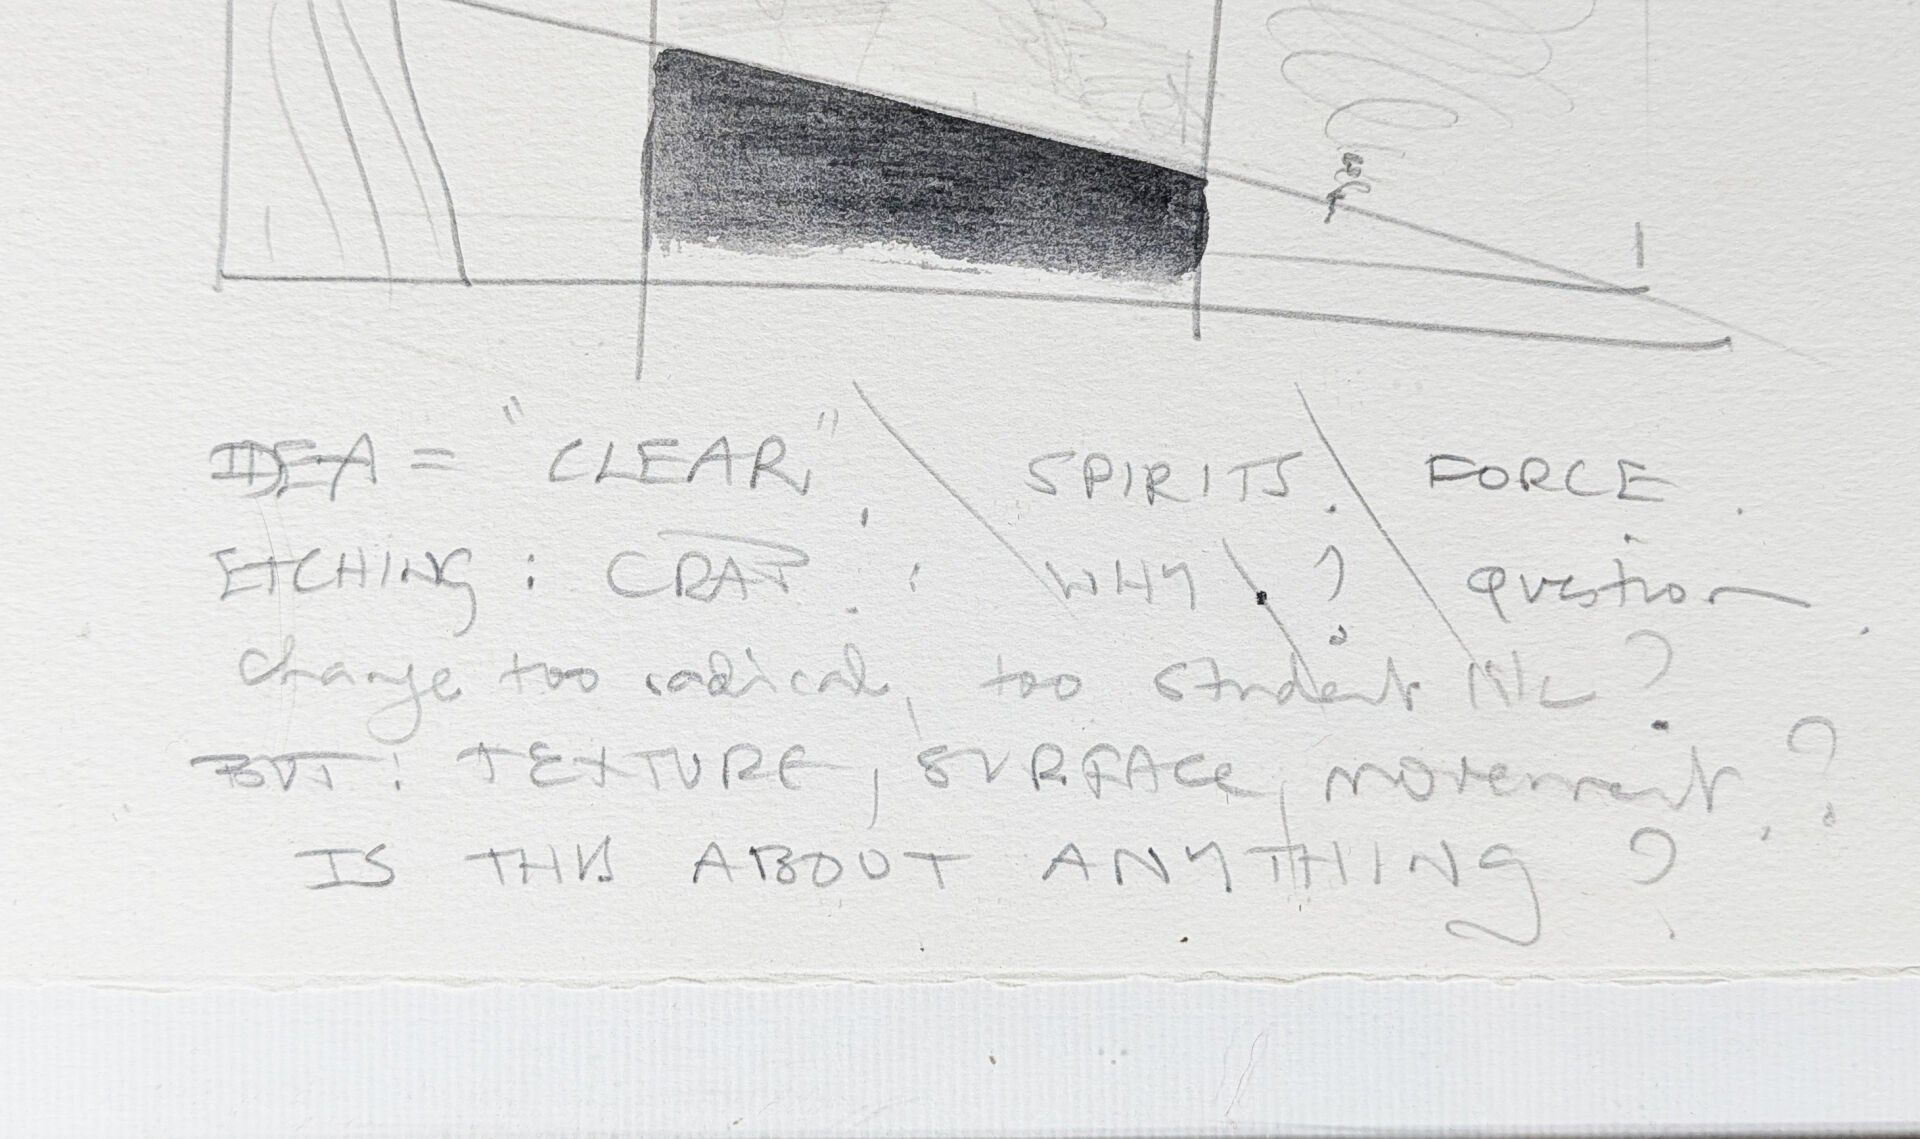 IDEA = "CLEAR," SPIRITS. FORCE.
ETCHING: CRAP. : WHY ? QUESTION
change too radical, too student like?
BUT: TEXTURE, SURFACE, movement?
IS THIS ABOUT ANYTHING?